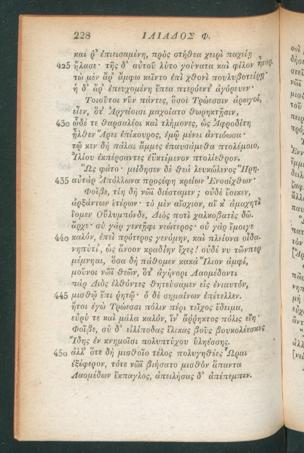 228 ΙΛΙΑΔΟΣ Φ.
καί ῥ' ἐπιεισαμένη, πρὸς στήθεα χειρὶ παχείῃ
425 ἤλασε· τῆς δ' αὐτοῦ λύτο γούνατα καὶ φίλον ἦτορ.
τὼ μὲν ἄρ' ἄμφω κεῖντο ἐπὶ χθονὶ πουλυβοτείρῃ·
ἡ δ' ἄρ' ἐπευχομένη ἔπεα πτερόεντ' ἀγόρευεν·
Τοιοῦτοι νῦν πάντες, ὅσοι Τρώεσσιν ἀρωγοί,
εἶεν, ὅτ' Ἀργείοισι μαχοίατο θωρηκτῇσιν,
430 ὧδέ τε θαρσαλέοι καὶ τλήμονες, ὡς Ἀφροδίτη
ἦλθεν Ἄρει ἐπίκουρος, ἐμῷ μένει ἀντιόωσα·
τῷ κεν δὴ πάλαι ἄμμες ἐπαυσάμεθα πτολέμοιο,
Ἰλίου ἐκπέρσαντες ἐϋκτίμενον πτολίεθρον.
Ὣς φάτο· μείδησεν δὲ θεὰ λευκώλενος Ἥρη.
435 αὐτὰρ Ἀπόλλωνα προσέφη κρείων Ἐνοσίχθων·
Φοῖβε, τίη δὴ νῶϊ διέσταμεν; οὐδὲ ἔοικεν,
ἀρξάντων ἑτέρων· τὸ μὲν αἴσχιον, αἴ κ' ἀμαχητὶ
ἴομεν Οὔλυμπόνδε, Διὸς ποτὶ χαλκοβατὲς δῶ.
ἄρχε· σὺ γὰρ γενεῆφι νεώτερος· οὐ γὰρ ἔμοιγε
440 καλόν, ἐπεὶ πρότερος γενόμην, καὶ πλείονα οἶδα.
νηπύτι', ὡς ἄνοον κραδίην ἔχες! οὐδέ νυ τῶνπερ
μέμνηαι, ὅσα δὴ πάθομεν κακὰ Ἴλιον ἀμφί,
μοῦνοι νῶϊ θεῶν, ὅτ' ἀγήνορι Λαομέδοντι
πὰρ Διὸς ἐλθόντες θητεύσαμεν εἰς ἐνιαυτόν,
445 μισθῷ ἔπι ῥητῷ· ὁ δὲ σημαίνων ἐπέτελλεν.
ἤτοι ἐγὼ Τρώεσσι πόλιν πέρι τεῖχος ἔδειμα,
εὐρύ τε καὶ μάλα καλόν, ἵν' ἄῤῥηκτος πόλις εἴη·
Φοῖβε, σὺ δ' εἰλίποδας ἕλικας βοῦς βουκολέεσκες
Ἴδης ἐν κνημοῖσι πολυπτύχου ὑληέσσης.
450 ἀλλ' ὅτε δὴ μισθοῖο τέλος πολυγηθέες Ὧραι
ἐξέφερον, τότε νῶϊ βιήσατο μισθὸν ἅπαντα
Λαομέδων ἔκπαγλος, ἀπειλήσας δ' ἀπέπεμπεν.